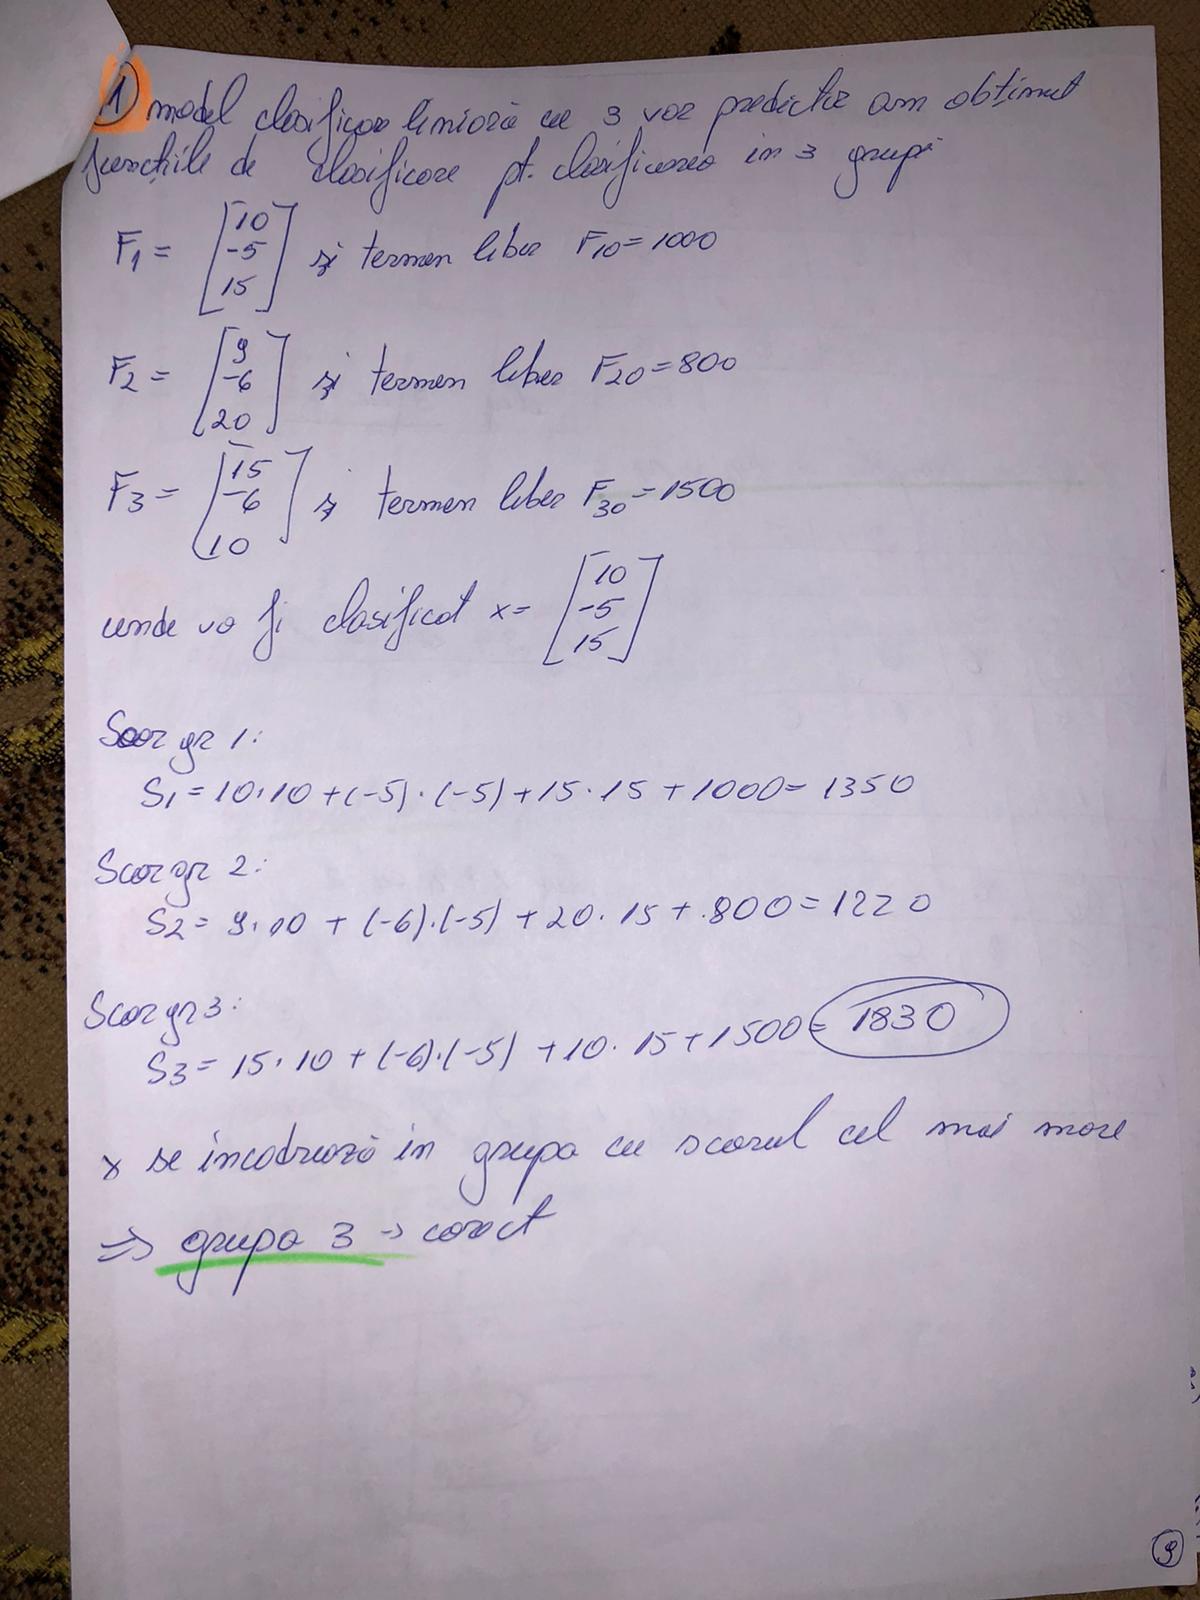 1) model clasificare liniară cu 3 var predictie am obtinut
funcțiile de clasificare pt. clasificarea in 3 grupe
F1 = [10 -5 15] și termen liber F10 = 1000
F2 = [9 -6 20] și termen liber F20 = 800
F3 = [15 -6 10] și termen liber F30 = 1500
unde va fi clasificat x = [10 -5 15]
Scor gr 1:
S1 = 10·10 + (-5)·(-5) + 15·15 + 1000 = 1350
Scor gr 2:
S2 = 9·10 + (-6)·(-5) + 20·15 + 800 = 1220
Scor gr 3:
S3 = 15·10 + (-6)·(-5) + 10·15 + 1500 = 1830
x se incadrează in grupa cu scorul cel mai mare
=> grupa 3 -> corect
9